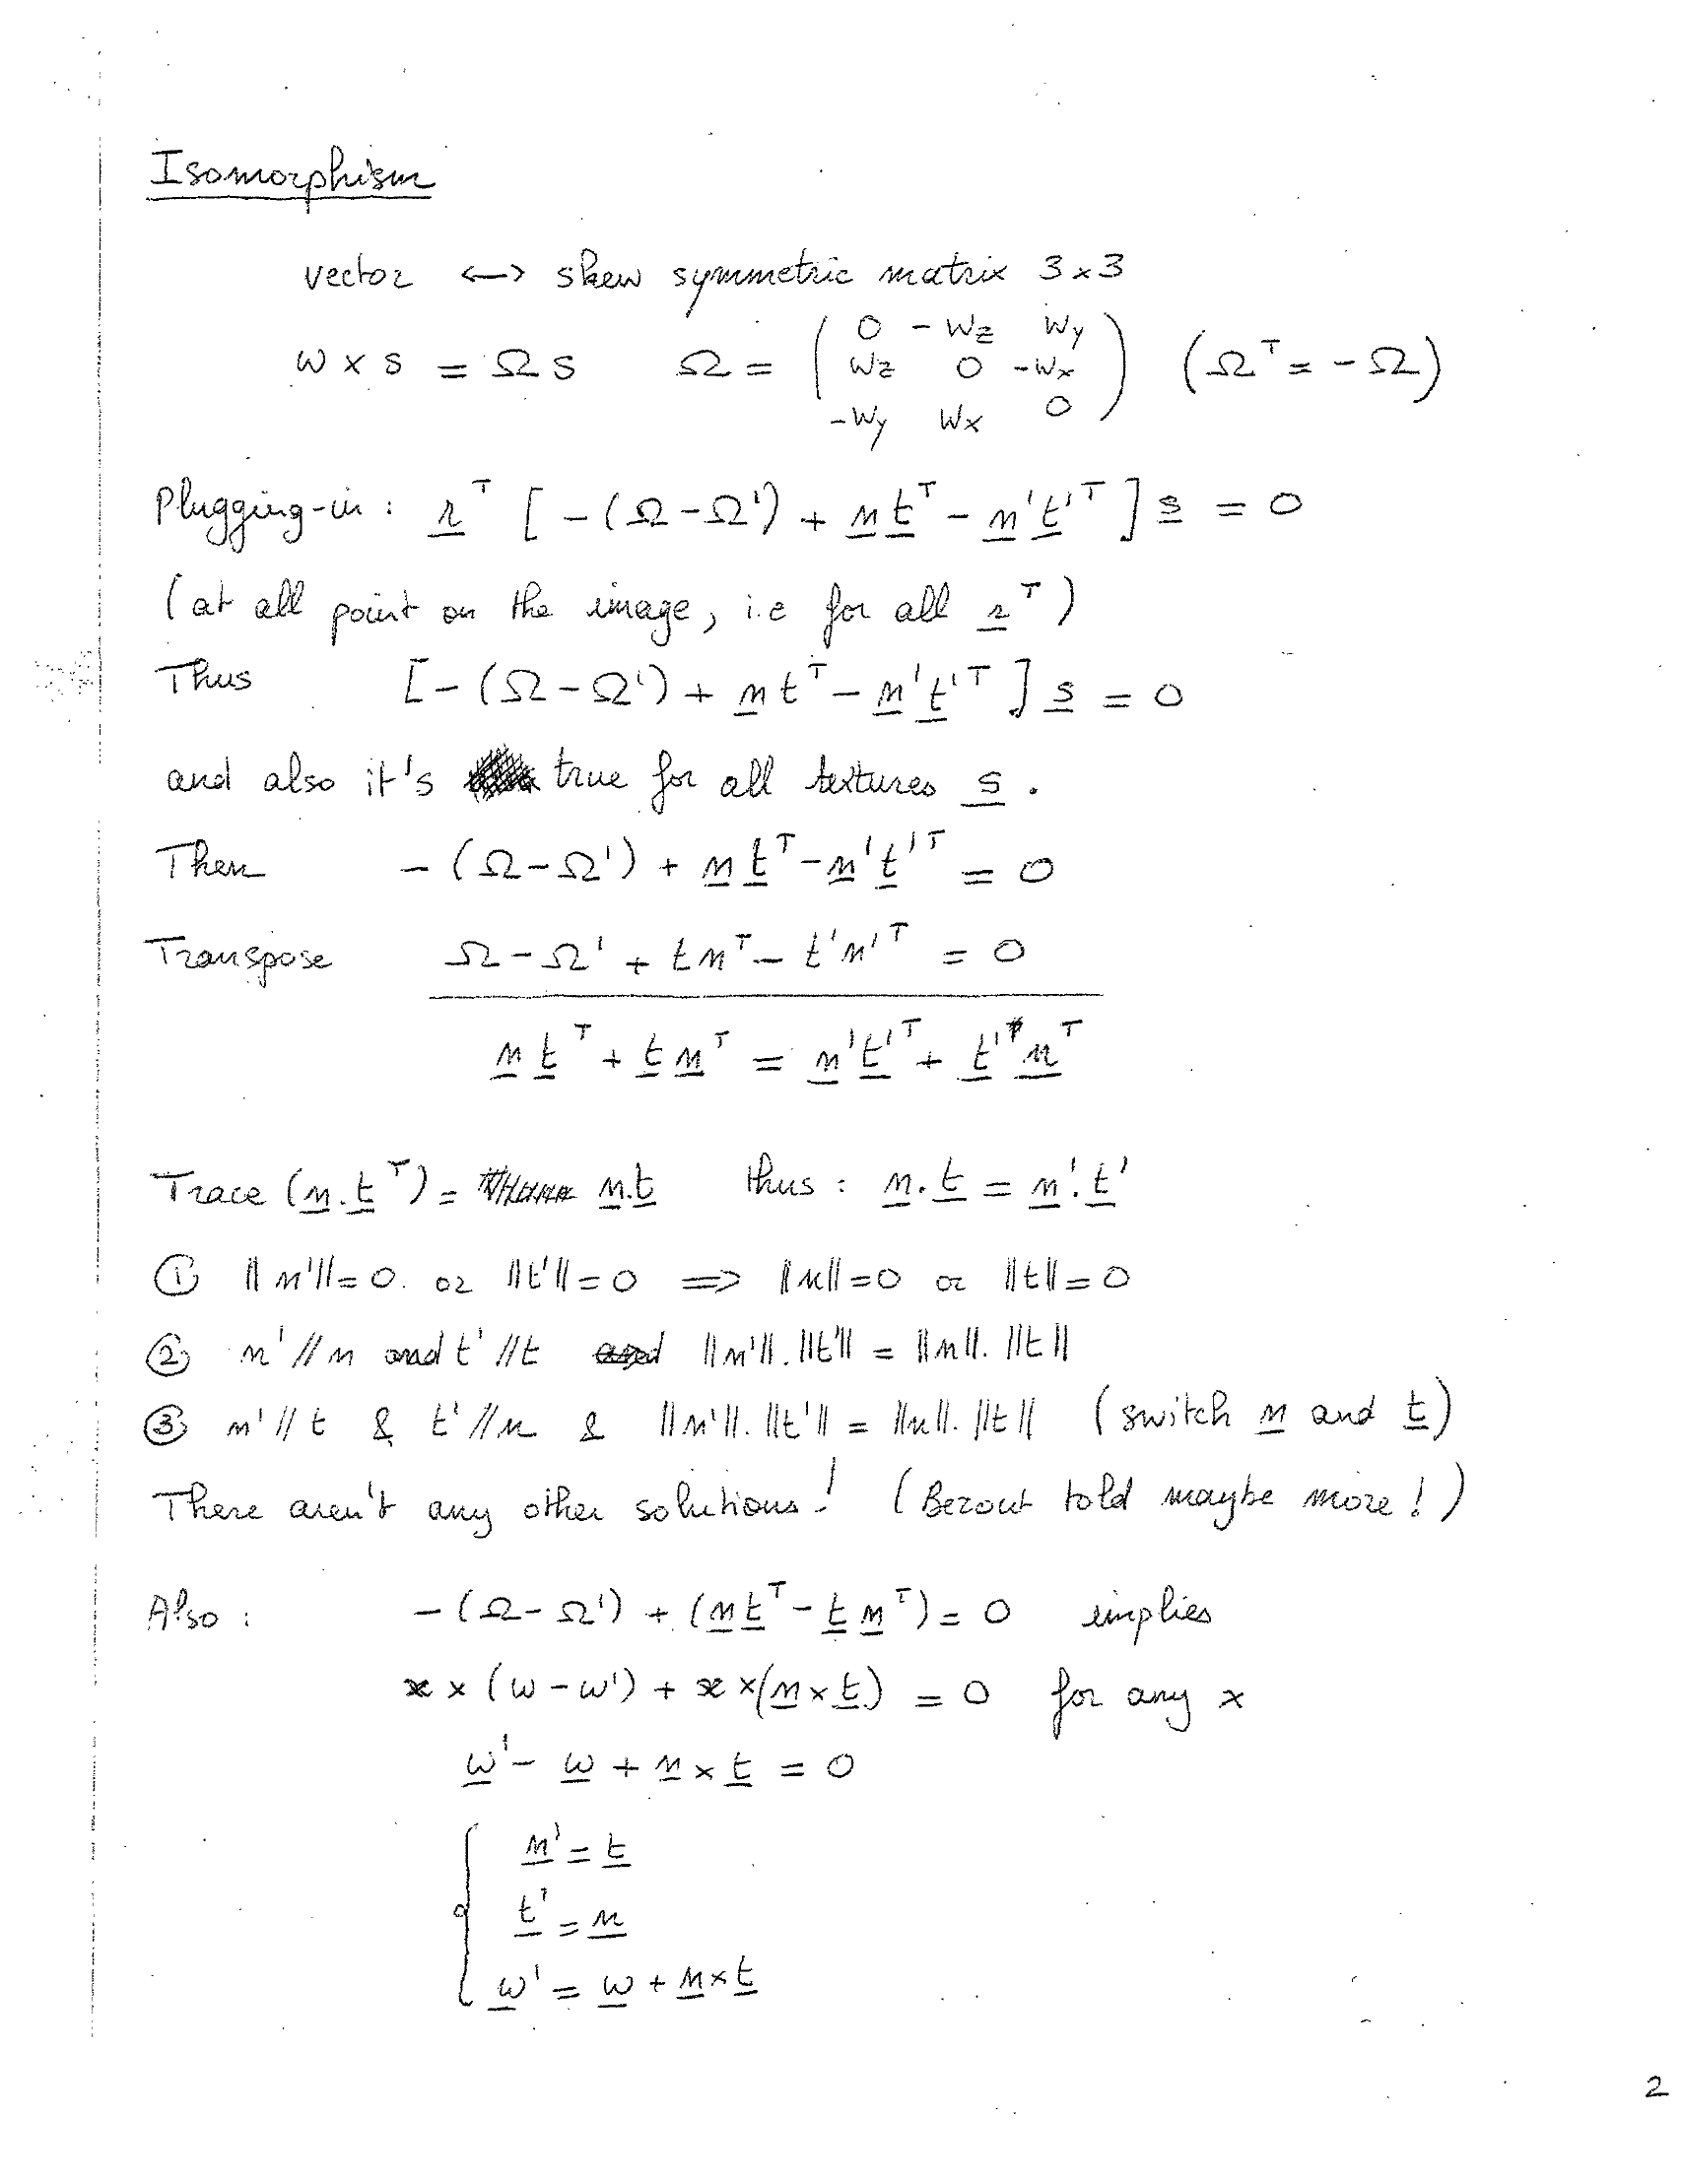 Isomorphism
vector <-> skew symmetric matrix 3x3
ω x s = Ω s    Ω = ( 0  -Wz  Wy
Wz  0  -Wx
-Wy  Wx  0 )    (Ω^T = -Ω)
Plugging-in : r^T [ -(Ω-Ω') + n t^T - n't'^T ] s = 0
(at all point on the image, i.e for all r^T)
Thus    [-(Ω-Ω') + n t^T - n't'^T ] s = 0
and also it's true for all textures s.
Then    -(Ω-Ω') + n t^T - n't'^T = 0
Transpose    Ω-Ω' + t n^T - t'n'^T = 0
n t^T + t n^T = n't'^T + t' n^T
Trace (n.t^T) = n.t    thus : n.t = n'.t'
① ||n'||=0. or ||t'||=0 => ||n||=0 or ||t||=0
② n' // n and t' // t    ||n'||.||t'|| = ||n||.||t||
③ n' // t & t' // n & ||n'||.||t'|| = ||n||.||t||    (switch n and t)
There aren't any other solutions! (Bezout told maybe more!)
Also :    -(Ω-Ω') + (n t^T - t n^T) = 0    implies
x x (ω-ω') + x x (n x t) = 0    for any x
ω' - ω + n x t = 0
{ n' = t
t' = n
ω' = ω + n x t
2